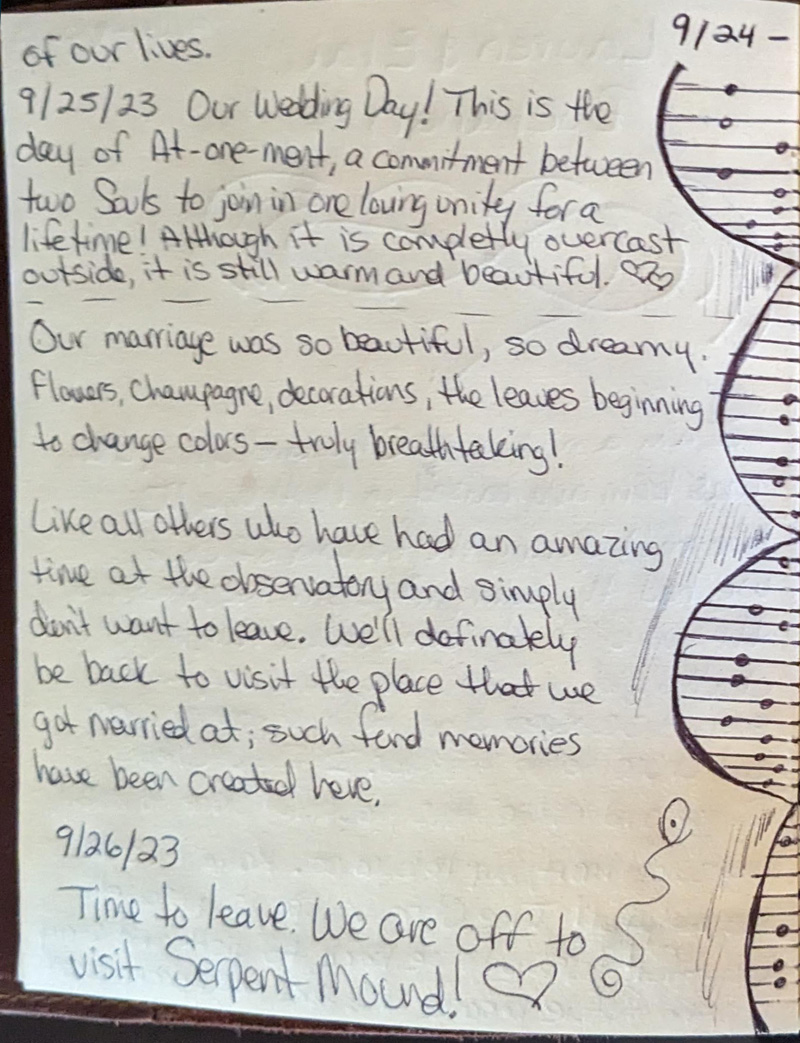 9/24 –
of our lives.
9/25/23 Our Wedding Day! This is the
day of At-one-ment, a commitment between
two Souls to join in one loving unity for a
lifetime! Although it is completly overcast
outside, it is still warm and beautiful.
Our marriage was so beautiful, so dreamy.
Flowers, Champagne, decorations, the leaves beginning
to change colors – truly breathtaking!
Like all others who have had an amazing
time at the observatory and simply
don't want to leave. We'll definately
be back to visit the place that we
got married at; such fond memories
have been created here.
9/26/23
Time to leave. We are off to
visit Serpent Mound!